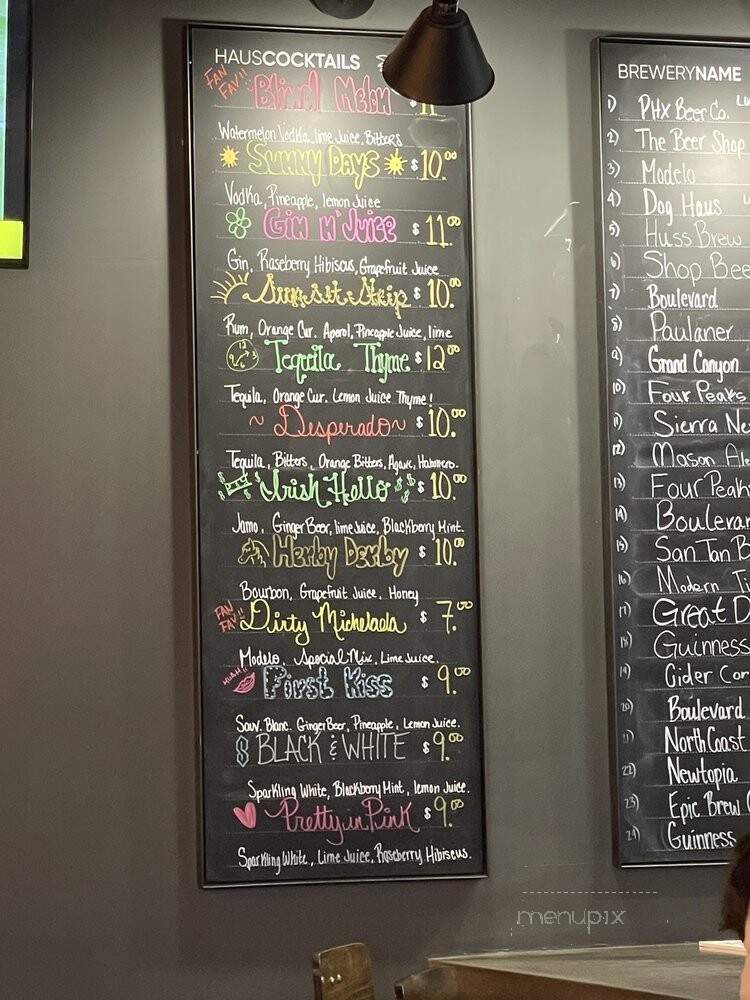 HAUSCOCKTAILS
FAN FAV!! Blind Melon $11
Watermelon Vodka, lime Juice, Bitters
Sunny Days $10.00
Vodka, Pineapple, lemon Juice
Gin N' Juice $11.00
Gin, Raseberry Hibiscus, Grapefruit Juice
Sunset Strip $10.00
Rum, Orange Cur. Aperol, Pineapple Juice, lime
Tequila Thyme $12.00
Tequila, Orange Cur. Lemon Juice Thyme!
~ Desperado ~ $10.00
Tequila, Bitters, Orange Bitters, Agave, Habanero.
Irish Hello $10.00
Jamo, Ginger Beer, lime Juice, Blackberry Mint.
Herby Derby $10.00
Bourbon, Grapefruit Juice, Honey
FAN FAV!! Dirty Michelada $7.00
Modelo, Special Mix, Lime Juice.
First Kiss $9.00
Sauv. Blanc. Ginger Beer, Pineapple, Lemon Juice.
BLACK & WHITE $9.00
Sparkling White, Blackberry Mint, lemon Juice.
Pretty in Pink $9.00
Sparkling White, Lime Juice, Raseberry Hibiscus.
BREWERYNAME
1) PHX Beer Co.
2) The Beer Shop
3) Modelo
4) Dog Haus
5) Huss Brew
6) Shop Bee
7) Boulevard
8) Paulaner
9) Grand Canyon
10) Four Peaks
11) Sierra Ne
12) Mason Ale
13) Four Peak
14) Boulevar
15) San Tan B
16) Modern Ti
17) Great D
18) Guinness
19) Cider Cor
20) Boulevard
21) North Coast
22) Newtopia
23) Epic Brew
24) Guinness
menupix